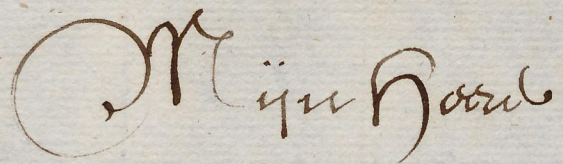 Mijn Heer